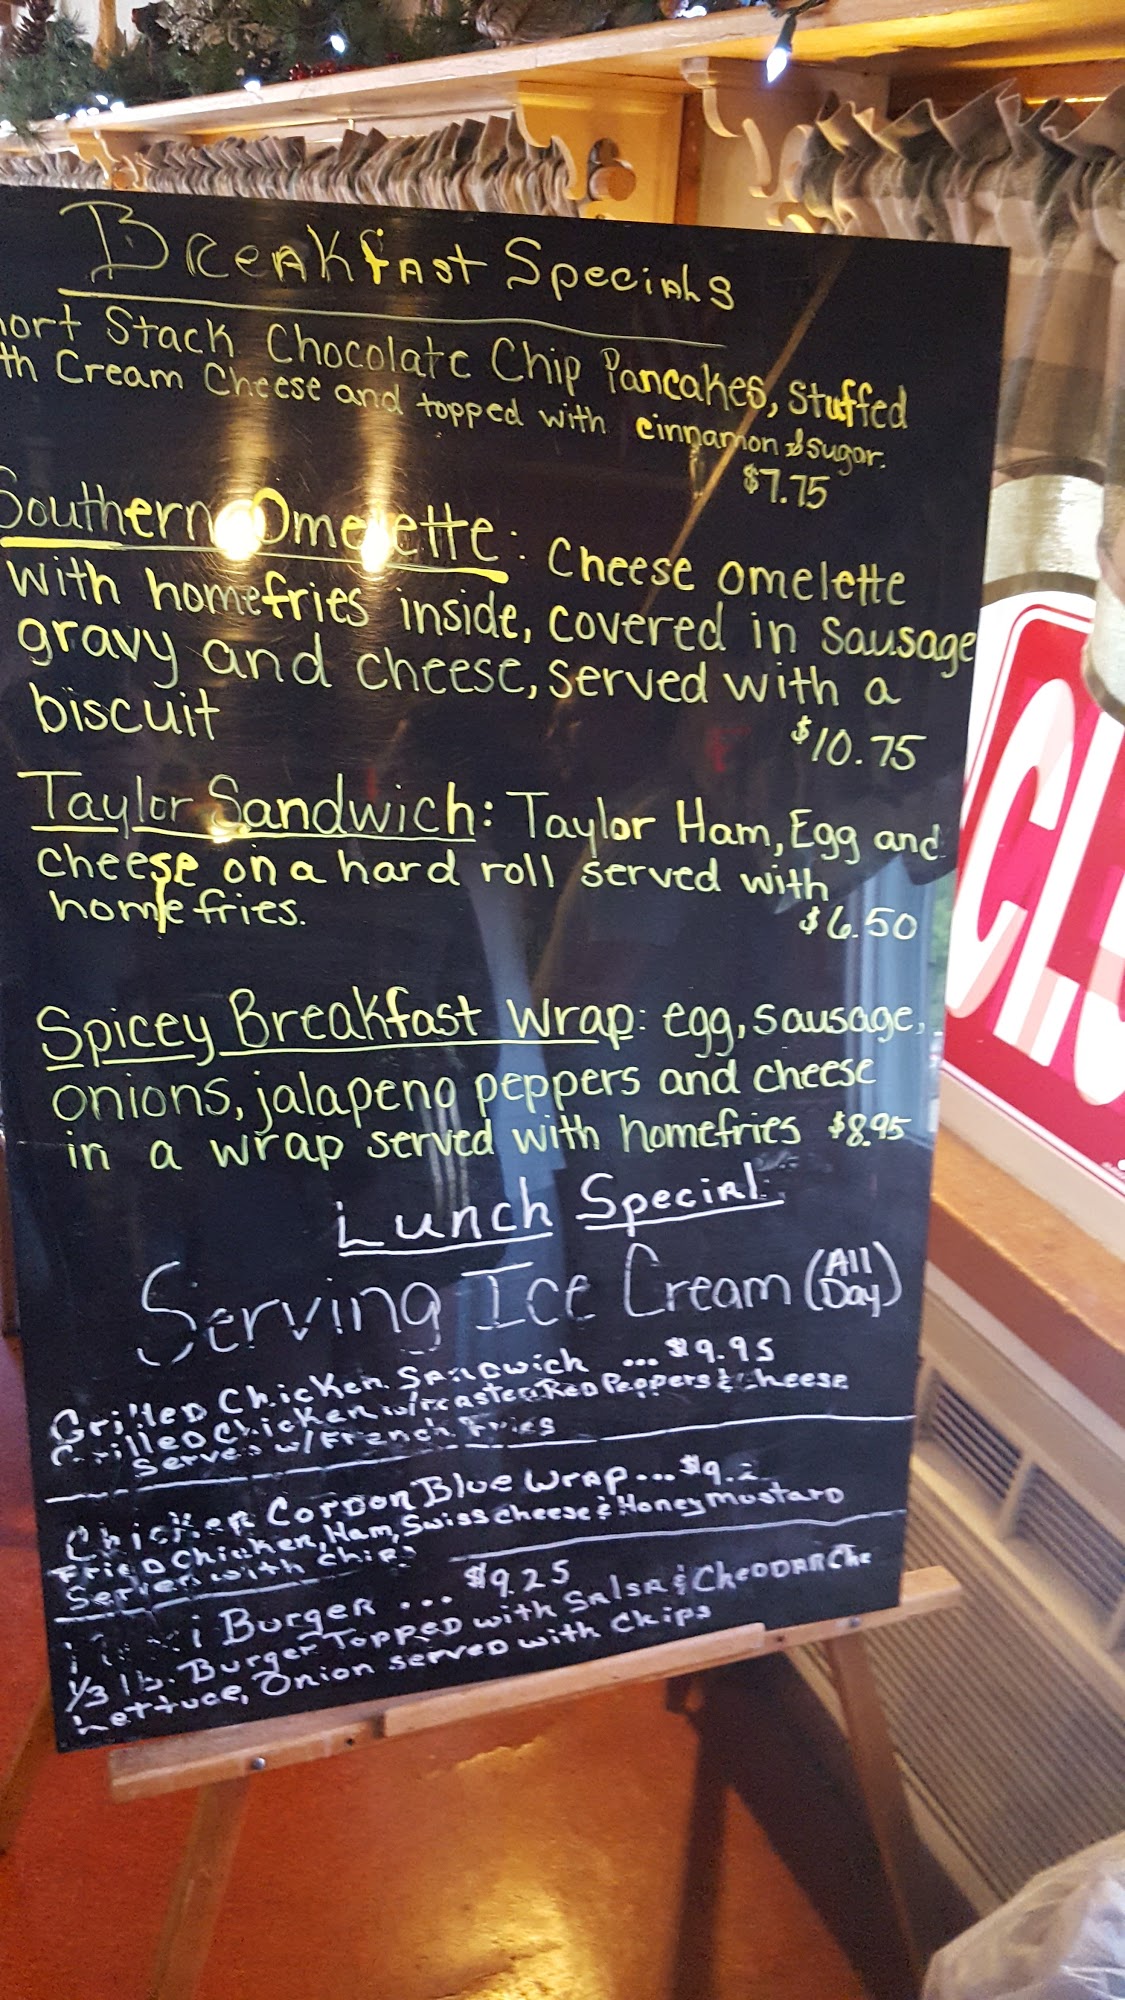 Breakfast Specials
ort Stack Chocolate Chip Pancakes, Stuffed
th Cream Cheese and topped with cinnamon & sugar.
$7.75
Southern Omelette: Cheese omelette
with homefries inside, covered in Sausage
gravy and cheese, served with a
biscuit
$10.75
Taylor Sandwich: Taylor Ham, Egg and
cheese on a hard roll served with
homefries.
$6.50
Spicey Breakfast Wrap: egg, sausage,
onions, jalapeno peppers and cheese
in a wrap served with homefries $8.95
Lunch Special
Serving Ice Cream (All Day)
Grilled Chicken Sandwich ... $9.95
Grilled Chicken w/roasted Red Peppers & Cheese
Served w/ French Fries
Chicken Cordon Blue Wrap... $9.2
Fried Chicken, Ham, Swiss cheese & Honey Mustard
Served with Chips
Burger ... $9.25
1/3 lb. Burger Topped with Salsa & Cheddar Che
Lettuce, Onion served with Chips